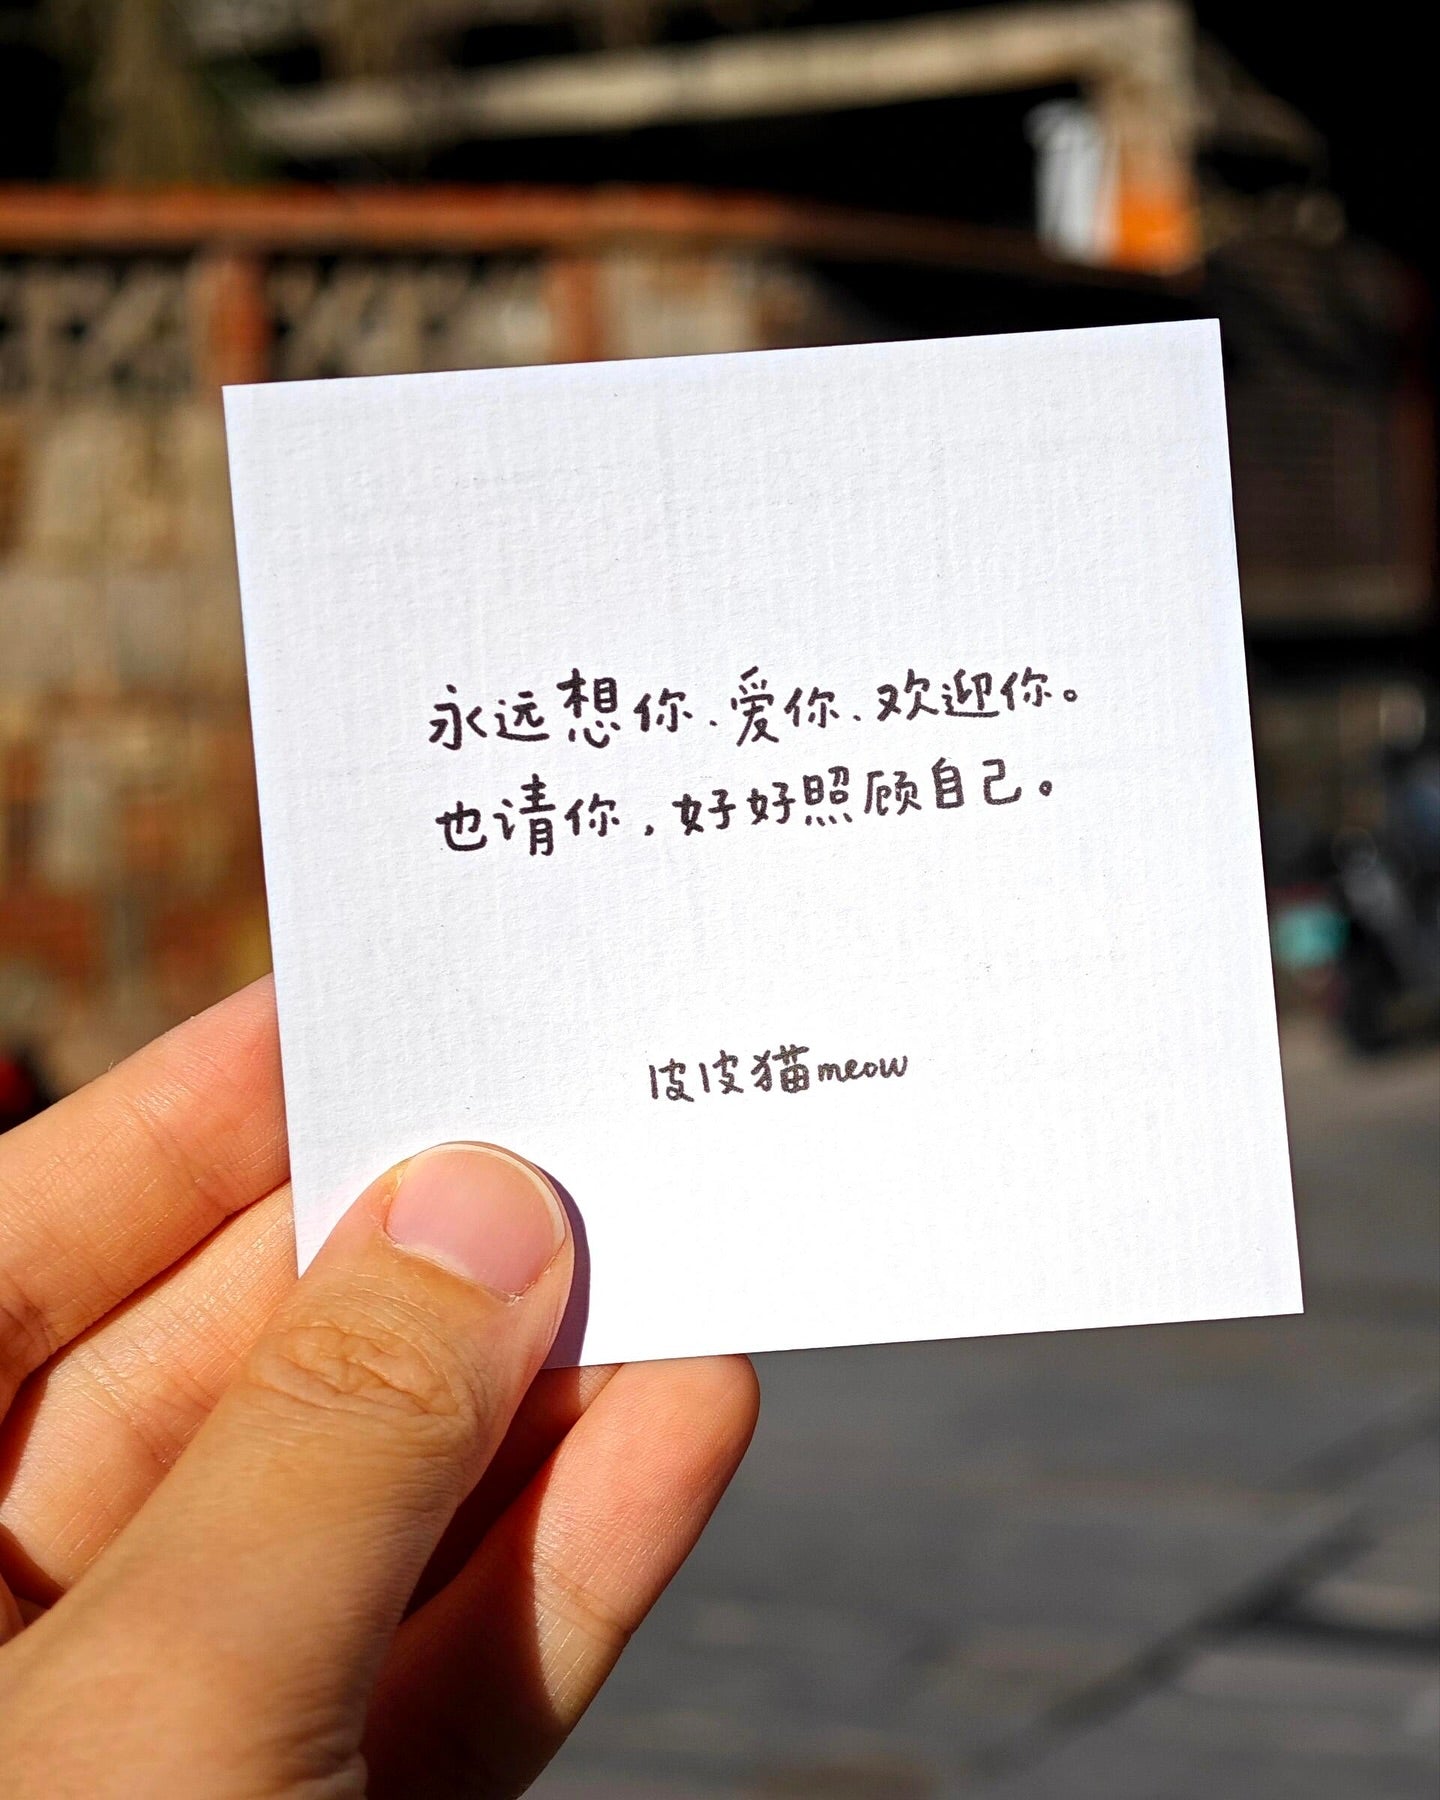 永远想你、爱你、欢迎你。
也请你，好好照顾自己。
皮皮猫meow